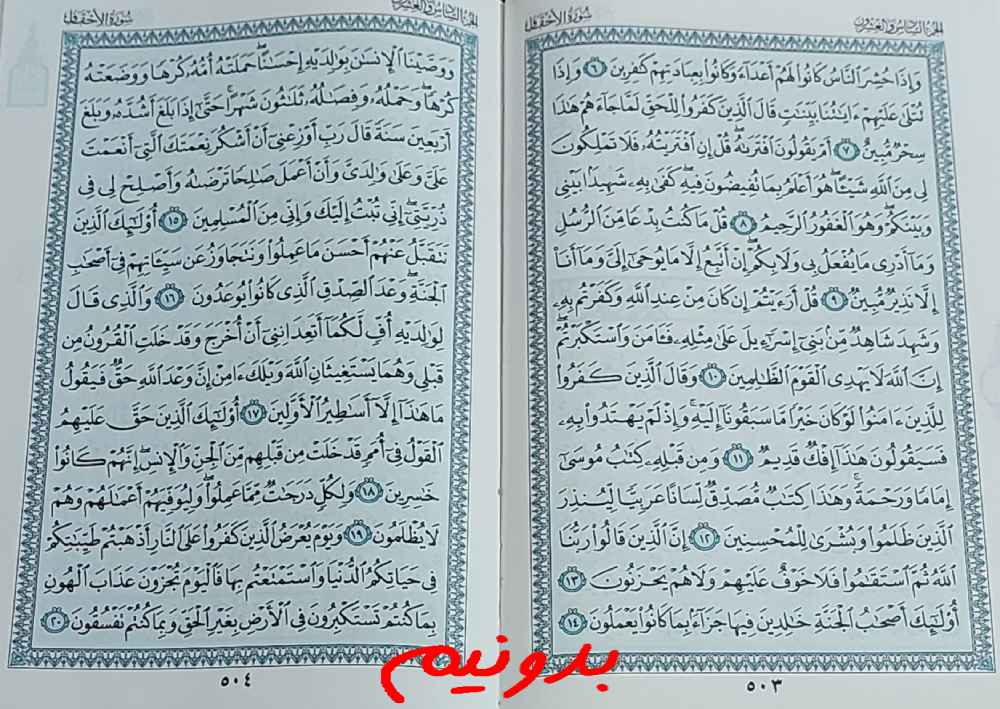 الجزء السادس والعشرون
سورة الأحقاف
وَإِذَا حُشِرَ ٱلنَّاسُ كَانُوا۟ لَهُمْ أَعْدَآءً وَكَانُوا۟ بِعِبَادَتِهِمْ كَٰفِرِينَ ٦ وَإِذَا
تُتْلَىٰ عَلَيْهِمْ ءَايَٰتُنَا بَيِّنَٰتٍ قَالَ ٱلَّذِينَ كَفَرُوا۟ لِلْحَقِّ لَمَّا جَآءَهُمْ هَٰذَا
سِحْرٌ مُّبِينٌ ٧ أَمْ يَقُولُونَ ٱفْتَرَىٰهُ ۖ قُلْ إِنِ ٱفْتَرَيْتُهُۥ فَلَا تَمْلِكُونَ
لِى مِنَ ٱللَّهِ شَيْـًٔا ۖ هُوَ أَعْلَمُ بِمَا تُفِيضُونَ فِيهِ ۖ كَفَىٰ بِهِۦ شَهِيدًۢا بَيْنِى
وَبَيْنَكُمْ ۖ وَهُوَ ٱلْغَفُورُ ٱلرَّحِيمُ ٨ قُلْ مَا كُنتُ بِدْعًا مِّنَ ٱلرُّسُلِ
وَمَآ أَدْرِى مَا يُفْعَلُ بِى وَلَا بِكُمْ ۖ إِنْ أَتَّبِعُ إِلَّا مَا يُوحَىٰٓ إِلَىَّ وَمَآ أَنَا۠
إِلَّا نَذِيرٌ مُّبِينٌ ٩ قُلْ أَرَءَيْتُمْ إِن كَانَ مِنْ عِندِ ٱللَّهِ وَكَفَرْتُم بِهِۦ
وَشَهِدَ شَاهِدٌ مِّنۢ بَنِىٓ إِسْرَٰٓءِيلَ عَلَىٰ مِثْلِهِۦ فَـَٔامَنَ وَٱسْتَكْبَرْتُمْ ۖ
إِنَّ ٱللَّهَ لَا يَهْدِى ٱلْقَوْمَ ٱلظَّٰلِمِينَ ١٠ وَقَالَ ٱلَّذِينَ كَفَرُوا۟
لِلَّذِينَ ءَامَنُوا۟ لَوْ كَانَ خَيْرًا مَّا سَبَقُونَآ إِلَيْهِ ۚ وَإِذْ لَمْ يَهْتَدُوا۟ بِهِۦ
فَسَيَقُولُونَ هَٰذَآ إِفْكٌ قَدِيمٌ ١١ وَمِن قَبْلِهِۦ كِتَٰبُ مُوسَىٰٓ
إِمَامًا وَرَحْمَةً ۚ وَهَٰذَا كِتَٰبٌ مُّصَدِّقٌ لِّسَانًا عَرَبِيًّا لِّيُنذِرَ
ٱلَّذِينَ ظَلَمُوا۟ وَبُشْرَىٰ لِلْمُحْسِنِينَ ١٢ إِنَّ ٱلَّذِينَ قَالُوا۟ رَبُّنَا
ٱللَّهُ ثُمَّ ٱسْتَقَٰمُوا۟ فَلَا خَوْفٌ عَلَيْهِمْ وَلَا هُمْ يَحْزَنُونَ ١٣
أُو۟لَٰٓئِكَ أَصْحَٰبُ ٱلْجَنَّةِ خَٰلِدِينَ فِيهَا جَزَآءًۢ بِمَا كَانُوا۟ يَعْمَلُونَ ١٤
٥٠٣
الجزء السادس والعشرون
سورة الأحقاف
وَوَصَّيْنَا ٱلْإِنسَٰنَ بِوَٰلِدَيْهِ إِحْسَٰنًا ۖ حَمَلَتْهُ أُمُّهُۥ كُرْهًا وَوَضَعَتْهُ
كُرْهًا ۖ وَحَمْلُهُۥ وَفِصَٰلُهُۥ ثَلَٰثُونَ شَهْرًا ۚ حَتَّىٰٓ إِذَا بَلَغَ أَشُدَّهُۥ وَبَلَغَ
أَرْبَعِينَ سَنَةً قَالَ رَبِّ أَوْزِعْنِىٓ أَنْ أَشْكُرَ نِعْمَتَكَ ٱلَّتِىٓ أَنْعَمْتَ
عَلَىَّ وَعَلَىٰ وَٰلِدَىَّ وَأَنْ أَعْمَلَ صَٰلِحًا تَرْضَىٰهُ وَأَصْلِحْ لِى فِى
ذُرِّيَّتِىٓ ۖ إِنِّى تُبْتُ إِلَيْكَ وَإِنِّى مِنَ ٱلْمُسْلِمِينَ ١٥ أُو۟لَٰٓئِكَ ٱلَّذِينَ
نَتَقَبَّلُ عَنْهُمْ أَحْسَنَ مَا عَمِلُوا۟ وَنَتَجَاوَزُ عَن سَيِّـَٔاتِهِمْ فِىٓ أَصْحَٰبِ
ٱلْجَنَّةِ ۖ وَعْدَ ٱلصِّدْقِ ٱلَّذِى كَانُوا۟ يُوعَدُونَ ١٦ وَٱلَّذِى قَالَ
لِوَٰلِدَيْهِ أُفٍّ لَّكُمَآ أَتَعِدَانِنِىٓ أَنْ أُخْرَجَ وَقَدْ خَلَتِ ٱلْقُرُونُ مِن
قَبْلِى وَهُمَا يَسْتَغِيثَانِ ٱللَّهَ وَيْلَكَ ءَامِنْ إِنَّ وَعْدَ ٱللَّهِ حَقٌّ فَيَقُولُ
مَا هَٰذَآ إِلَّآ أَسَٰطِيرُ ٱلْأَوَّلِينَ ١٧ أُو۟لَٰٓئِكَ ٱلَّذِينَ حَقَّ عَلَيْهِمُ
ٱلْقَوْلُ فِىٓ أُمَمٍ قَدْ خَلَتْ مِن قَبْلِهِم مِّنَ ٱلْجِنِّ وَٱلْإِنسِ ۖ إِنَّهُمْ كَانُوا۟
خَٰسِرِينَ ١٨ وَلِكُلٍّ دَرَجَٰتٌ مِّمَّا عَمِلُوا۟ ۖ وَلِيُوَفِّيَهُمْ أَعْمَٰلَهُمْ وَهُمْ
لَا يُظْلَمُونَ ١٩ وَيَوْمَ يُعْرَضُ ٱلَّذِينَ كَفَرُوا۟ عَلَى ٱلنَّارِ أَذْهَبْتُمْ طَيِّبَٰتِكُمْ
فِى حَيَاتِكُمُ ٱلدُّنْيَا وَٱسْتَمْتَعْتُم بِهَا فَٱلْيَوْمَ تُجْزَوْنَ عَذَابَ ٱلْهُونِ
بِمَا كُنتُمْ تَسْتَكْبِرُونَ فِى ٱلْأَرْضِ بِغَيْرِ ٱلْحَقِّ وَبِمَا كُنتُمْ تَفْسُقُونَ ٢٠
٥٠٤
بدونیم